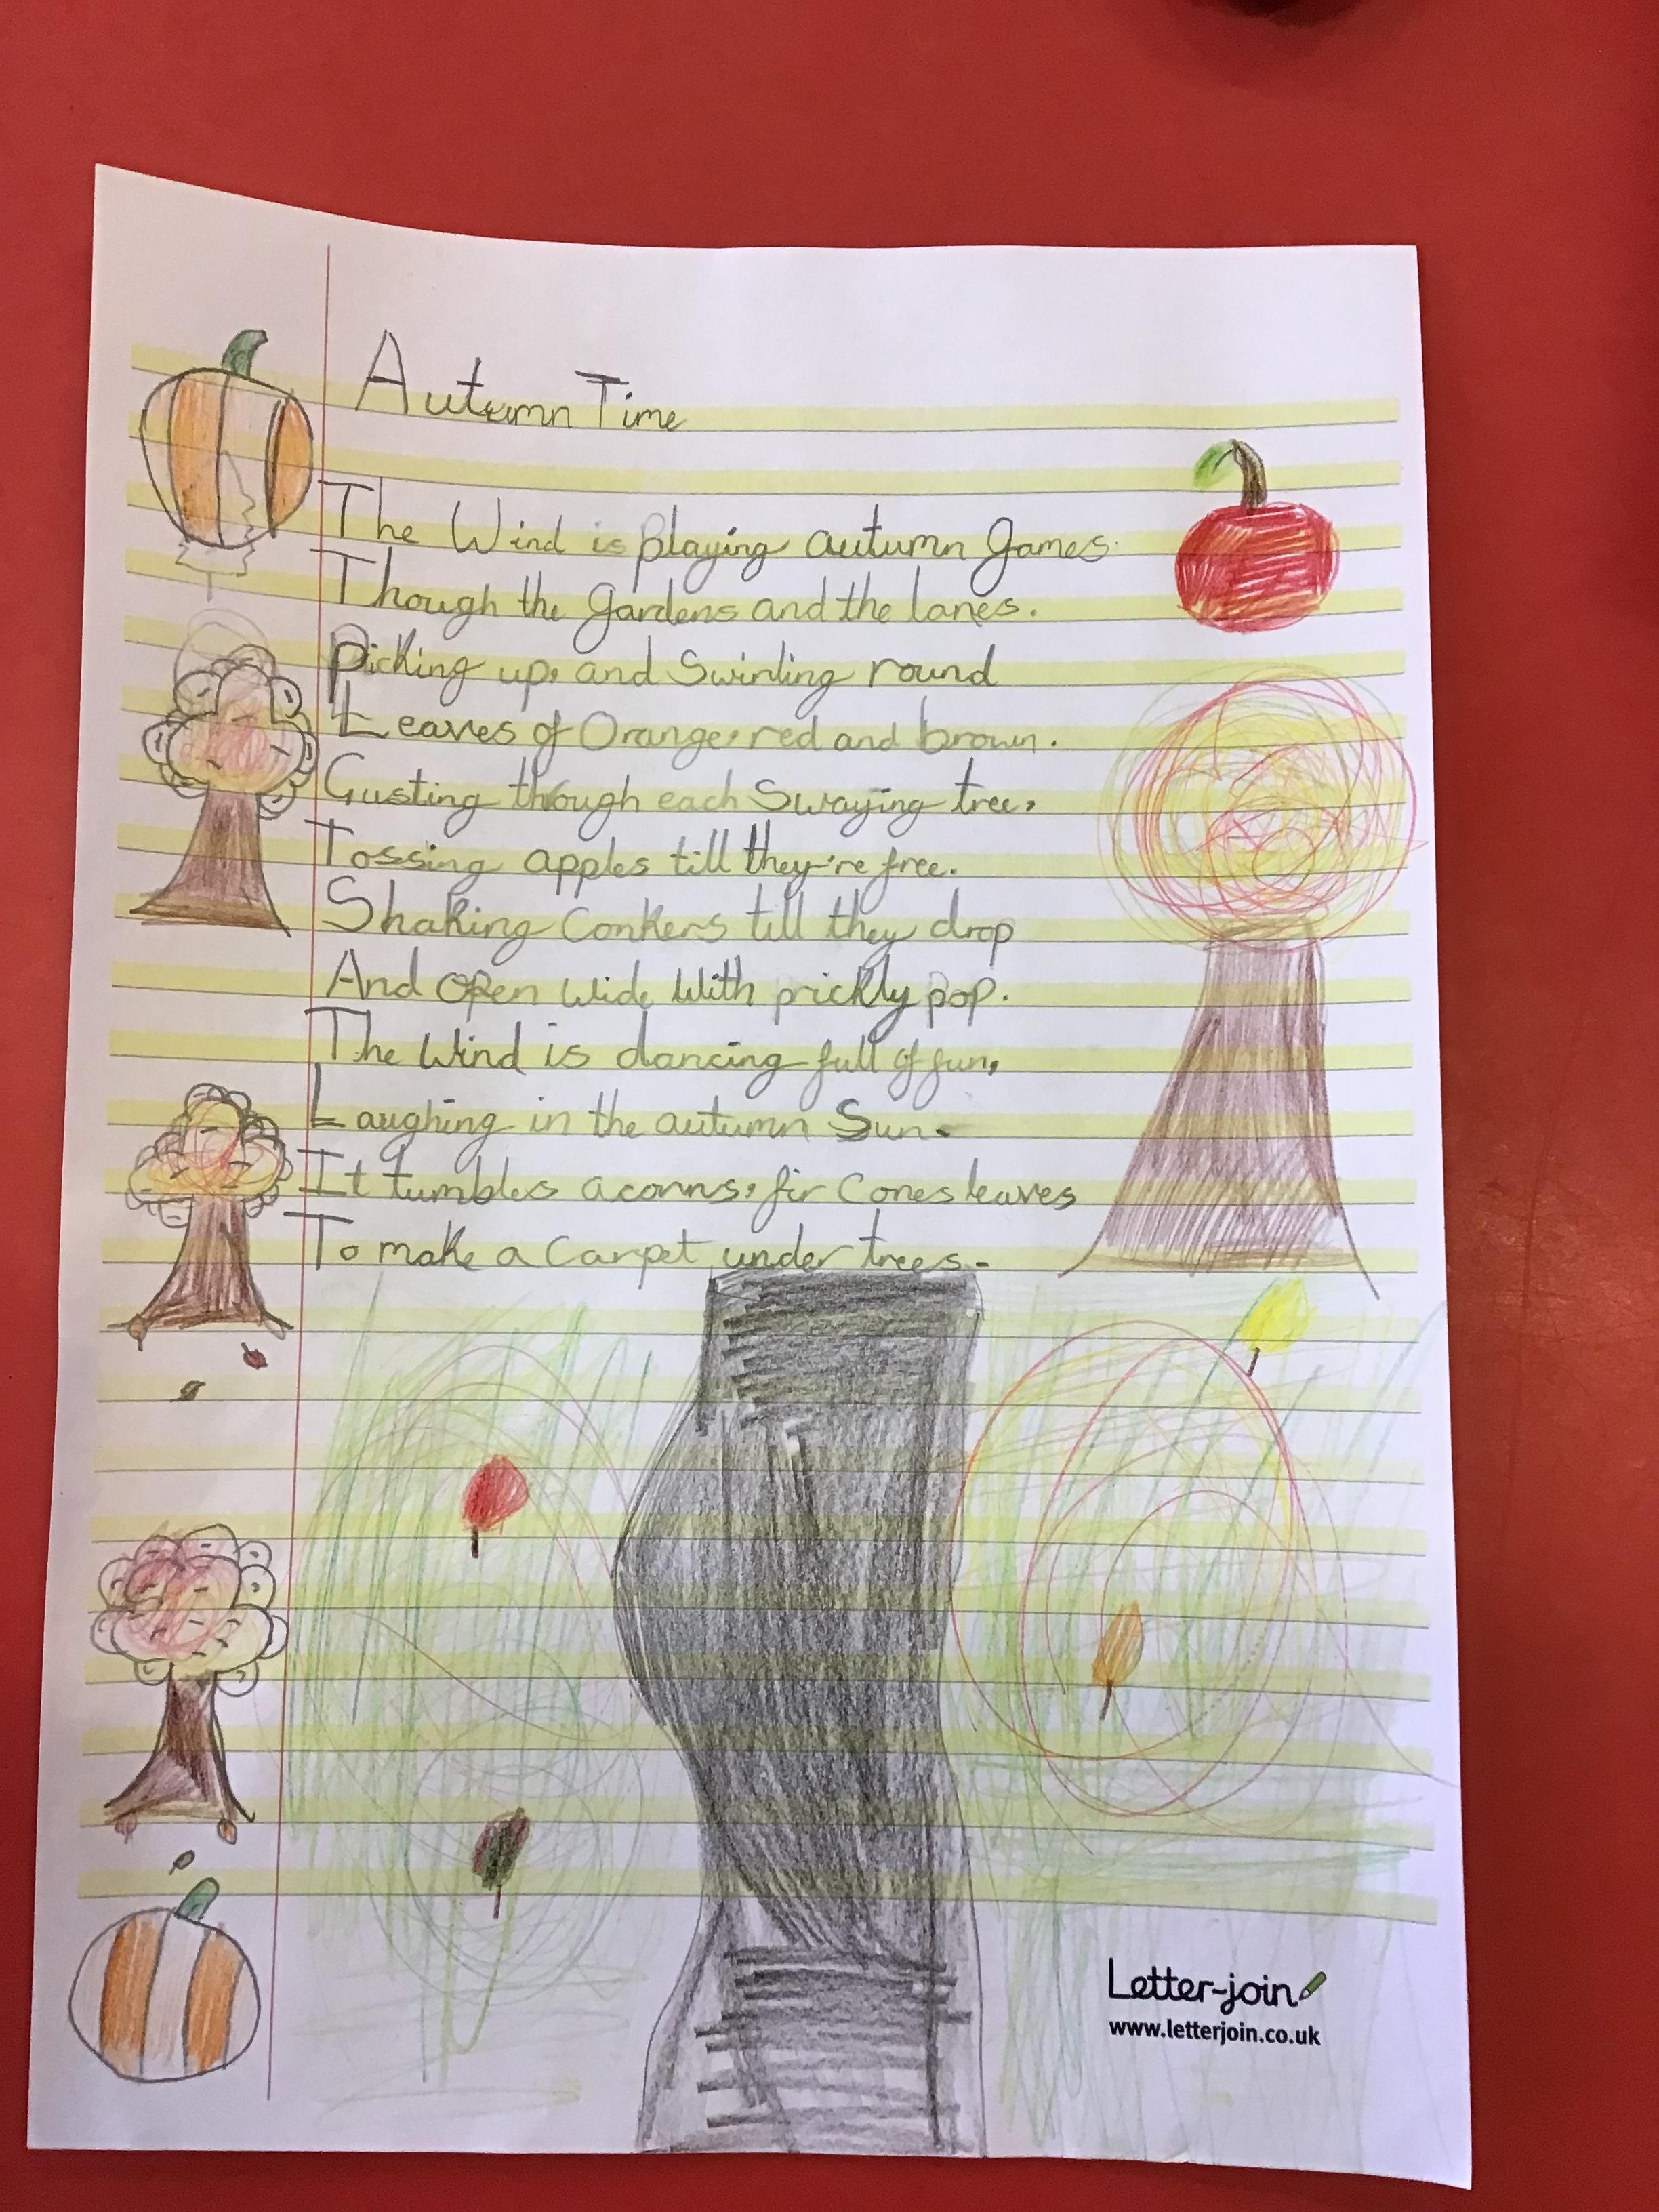 Autumn Time
The Wind is playing autumn games.
Though the gardens and the lanes.
Picking up, and Swirling round
Leaves of Orange, red and brown.
Gusting through each Swaying tree,
Tossing apples till they're free.
Shaking Conkers till they drop
And open wide With prickly pop.
The Wind is dancing full of fun,
Laughing in the autumn Sun.
It tumbles acorns, fir Cones leaves
To make a Carpet under trees.
Letter-join
www.letterjoin.co.uk